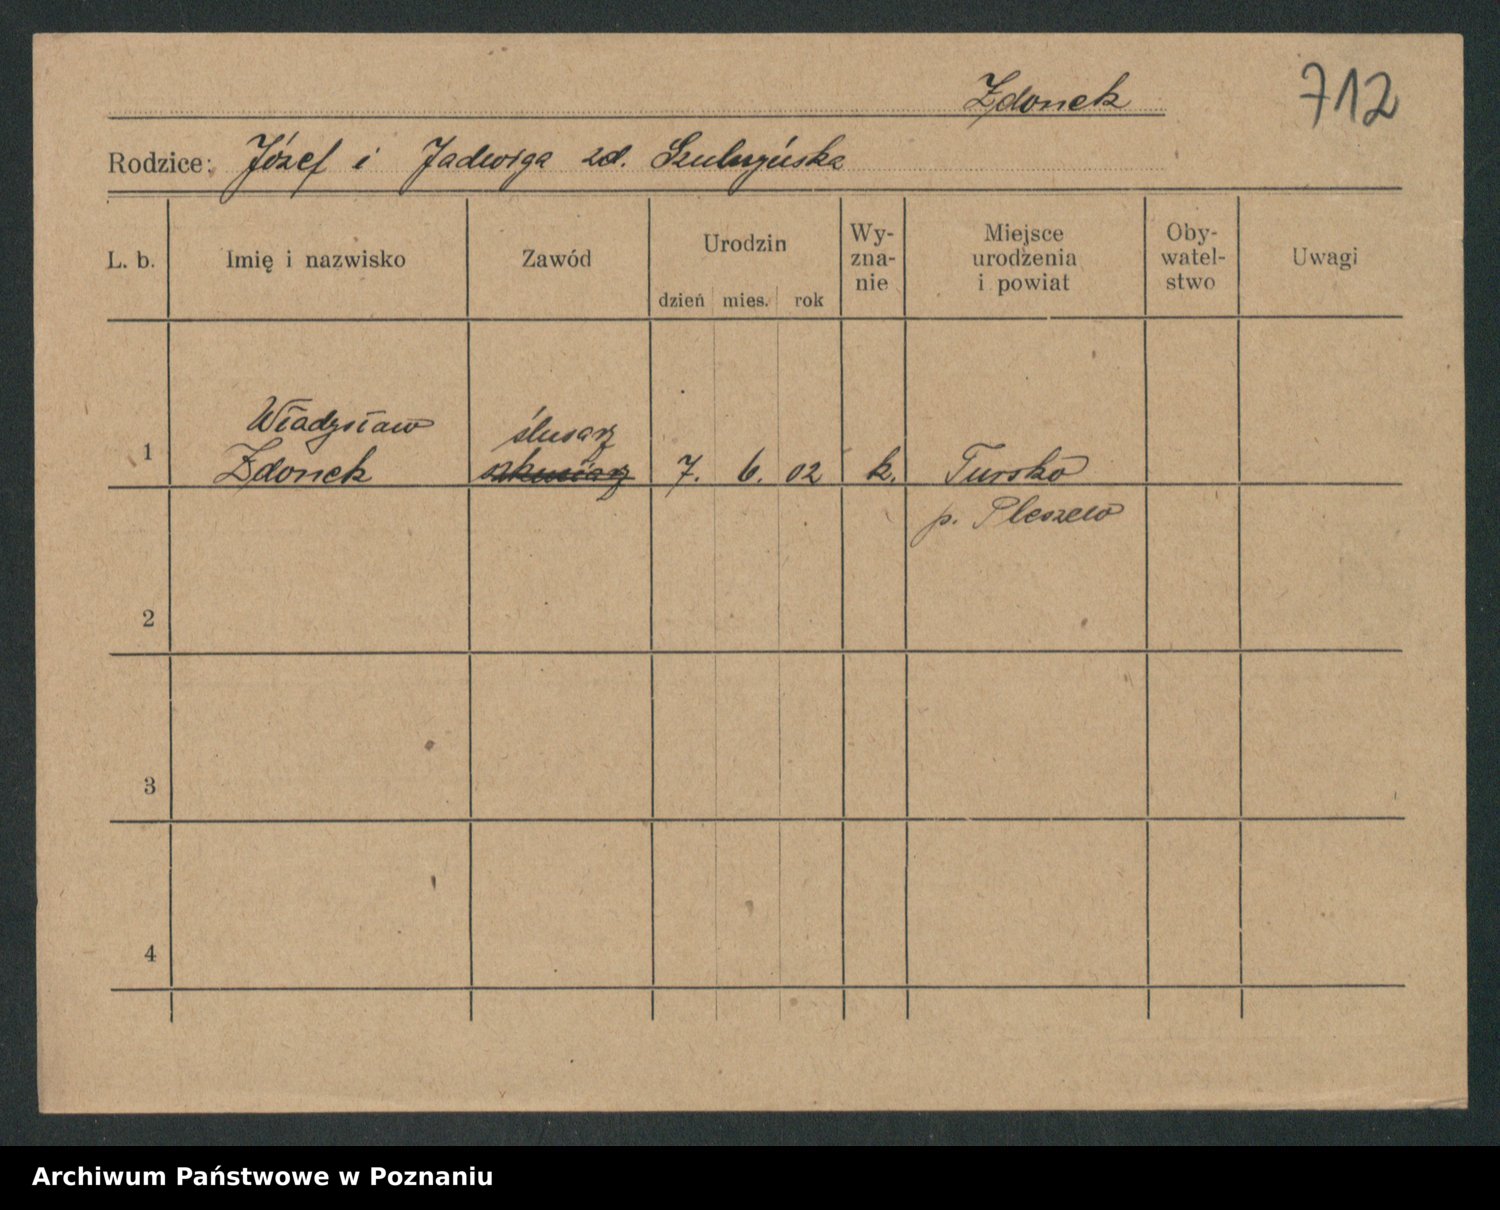 Zdonek
712
Rodzice: Józef i Jadwiga zd.
L. b. Imię i nazwisko Zawód Urodzin dzień mies. rok Wy-zna-nie Miejsce urodzenia i powiat Oby-watel-stwo Uwagi
Władysław ślusarz
1 Zdonek 7. 6. 02 k. Tursko
p. Pleszew
2
3
4
Archiwum Państwowe w Poznaniu